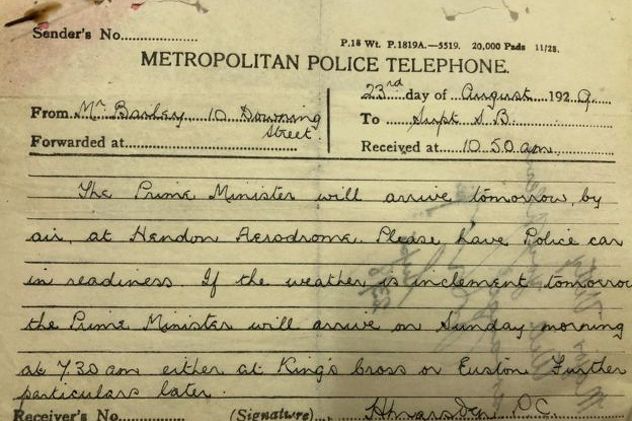 Sender's No.
P.18 Wt. P.1819A.—5519. 20,000 Pads 11/28.
METROPOLITAN POLICE TELEPHONE.
23rd day of August 1929.
From Mr Bailey 10 Downing Street.
To Supt S.B.
Forwarded at
Received at 10 50 am.
The Prime Minister will arrive tomorrow, by
air, at Hendon Aerodrome. Please have Police car
in readiness. If the weather is inclement tomorrow
the Prime Minister will arrive on Sunday morning
at 7.30 am either at King's Cross or Euston. Further
particulars later.
Receiver's No. (Signature) P.C.